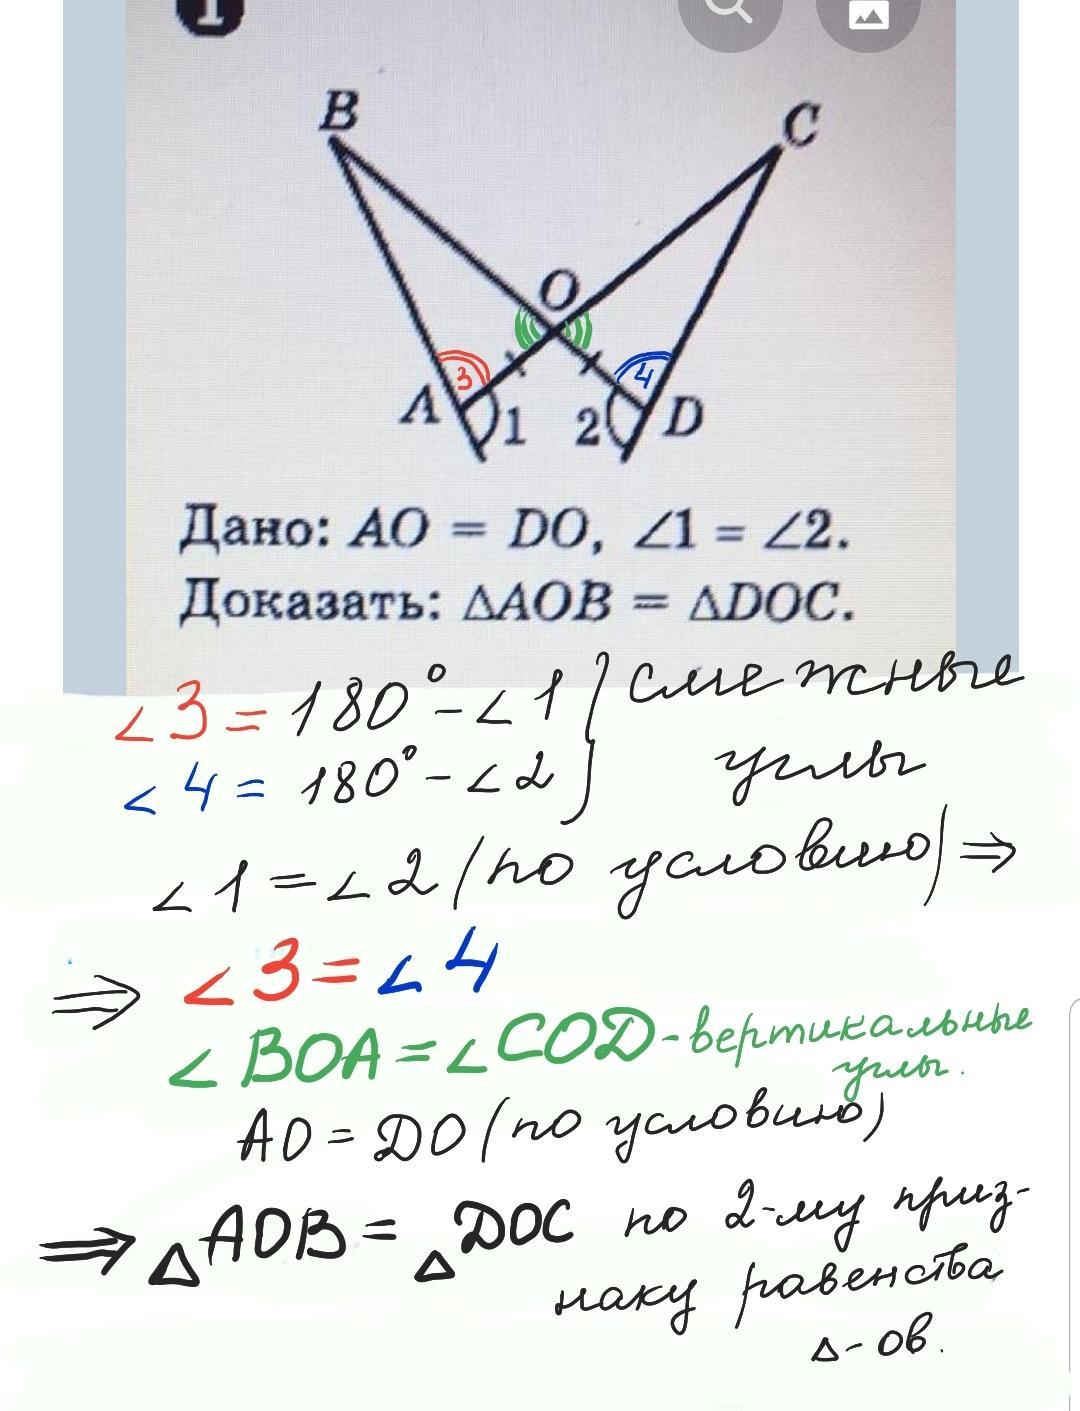 1
B
C
O
3
4
A
1
2
D
Дано: AO = DO, ∠1 = ∠2.
Доказать: △AOB = △DOC.
∠3 = 180° - ∠1 } смежные
∠4 = 180° - ∠2 } углы
∠1 = ∠2 (по условию) ⇒
⇒ ∠3 = ∠4
∠BOA = ∠COD - вертикальные
углы.
AO = DO (по условию)
⇒ △AOB = △DOC по 2-му приз-
наку равенства
△-ов.